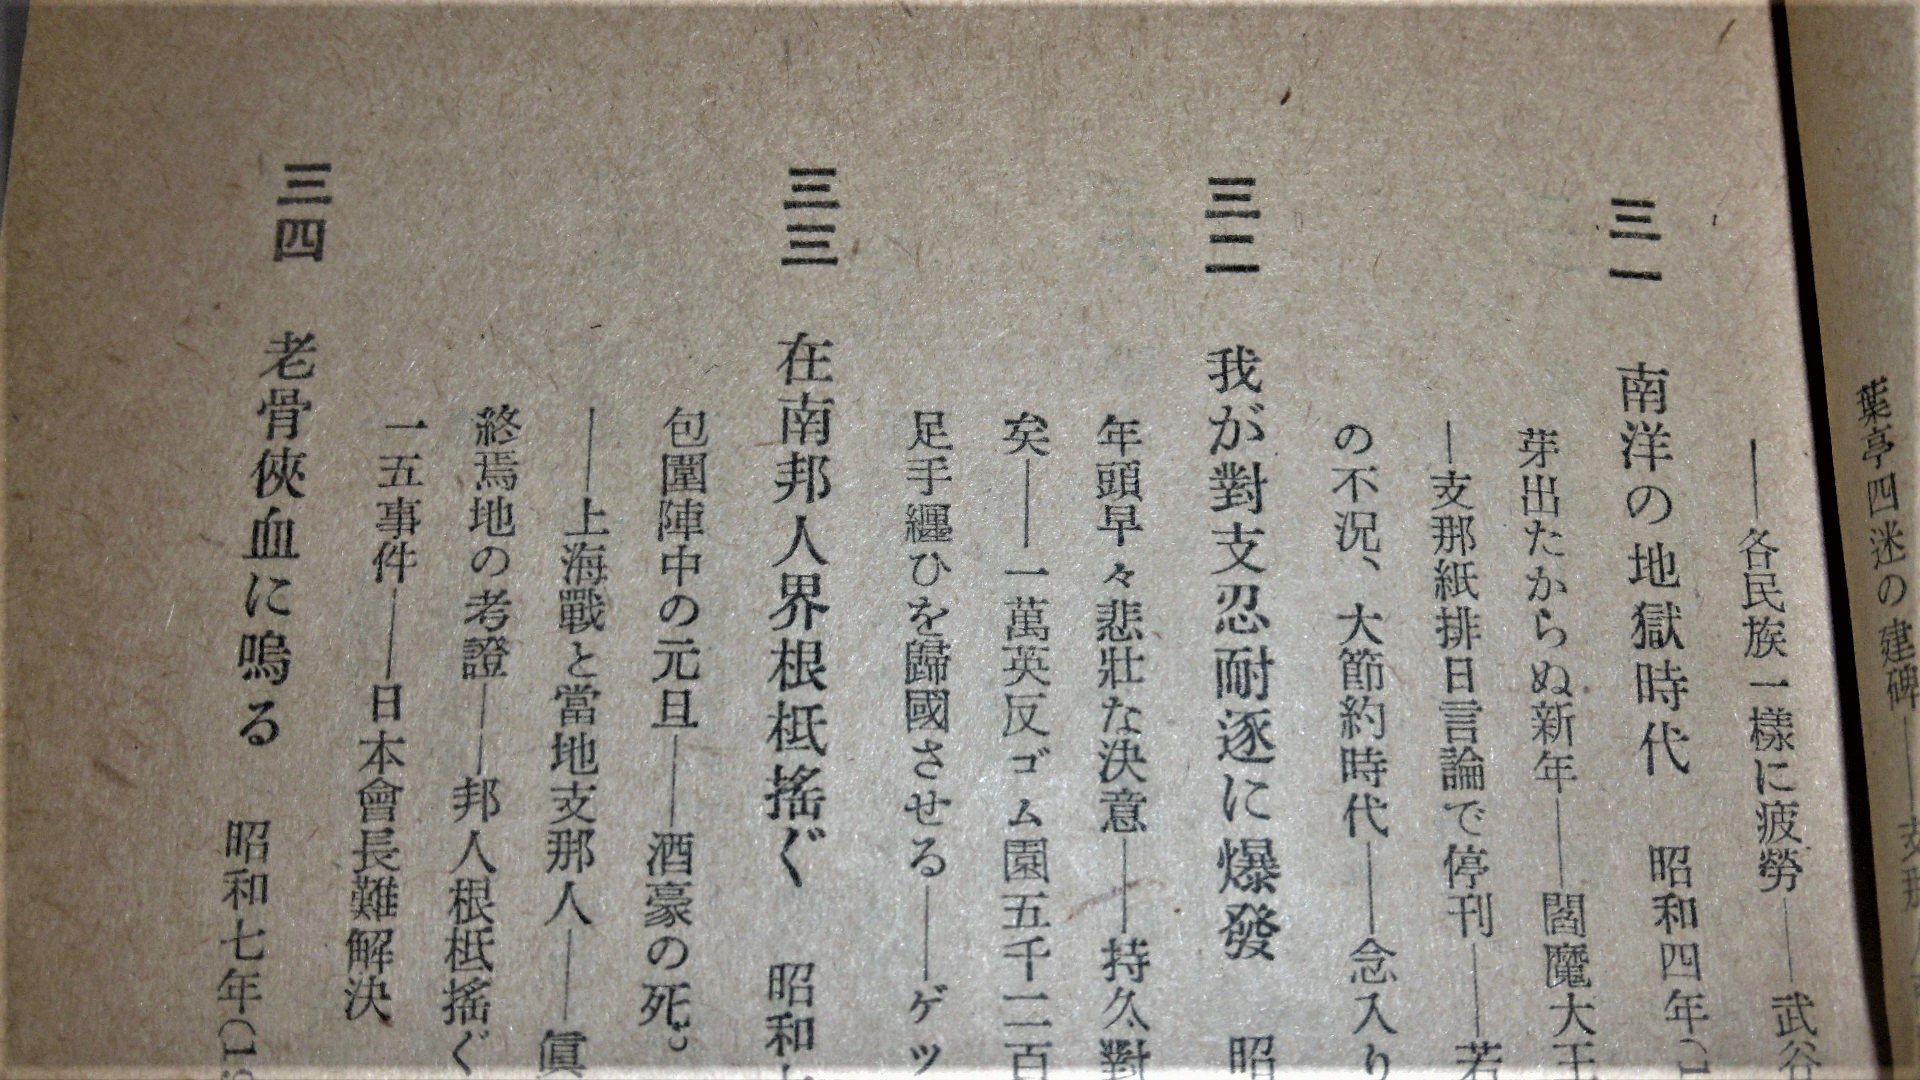 葉亭四迷の建碑――支那人
――各民族一樣に疲勞――武谷
三一 南洋の地獄時代 昭和四年(1
芽出たからぬ新年――閻魔大王
―支那紙排日言論で停刊――若
の不況、大節約時代――念入り
三二 我が對支忍耐遂に爆發 昭
年頭早々悲壯な決意――持久對
矣――一萬英反ゴム園五千二百
足手纒ひを歸國させる――ゲツ
三三 在南邦人界根柢搖ぐ 昭和
包圍陣中の元旦――酒豪の死。
――上海戰と當地支那人――眞
終焉地の考證――邦人根柢搖ぐ
一五事件――日本會長難解決
三四 老骨俠血に嗚る 昭和七年(19